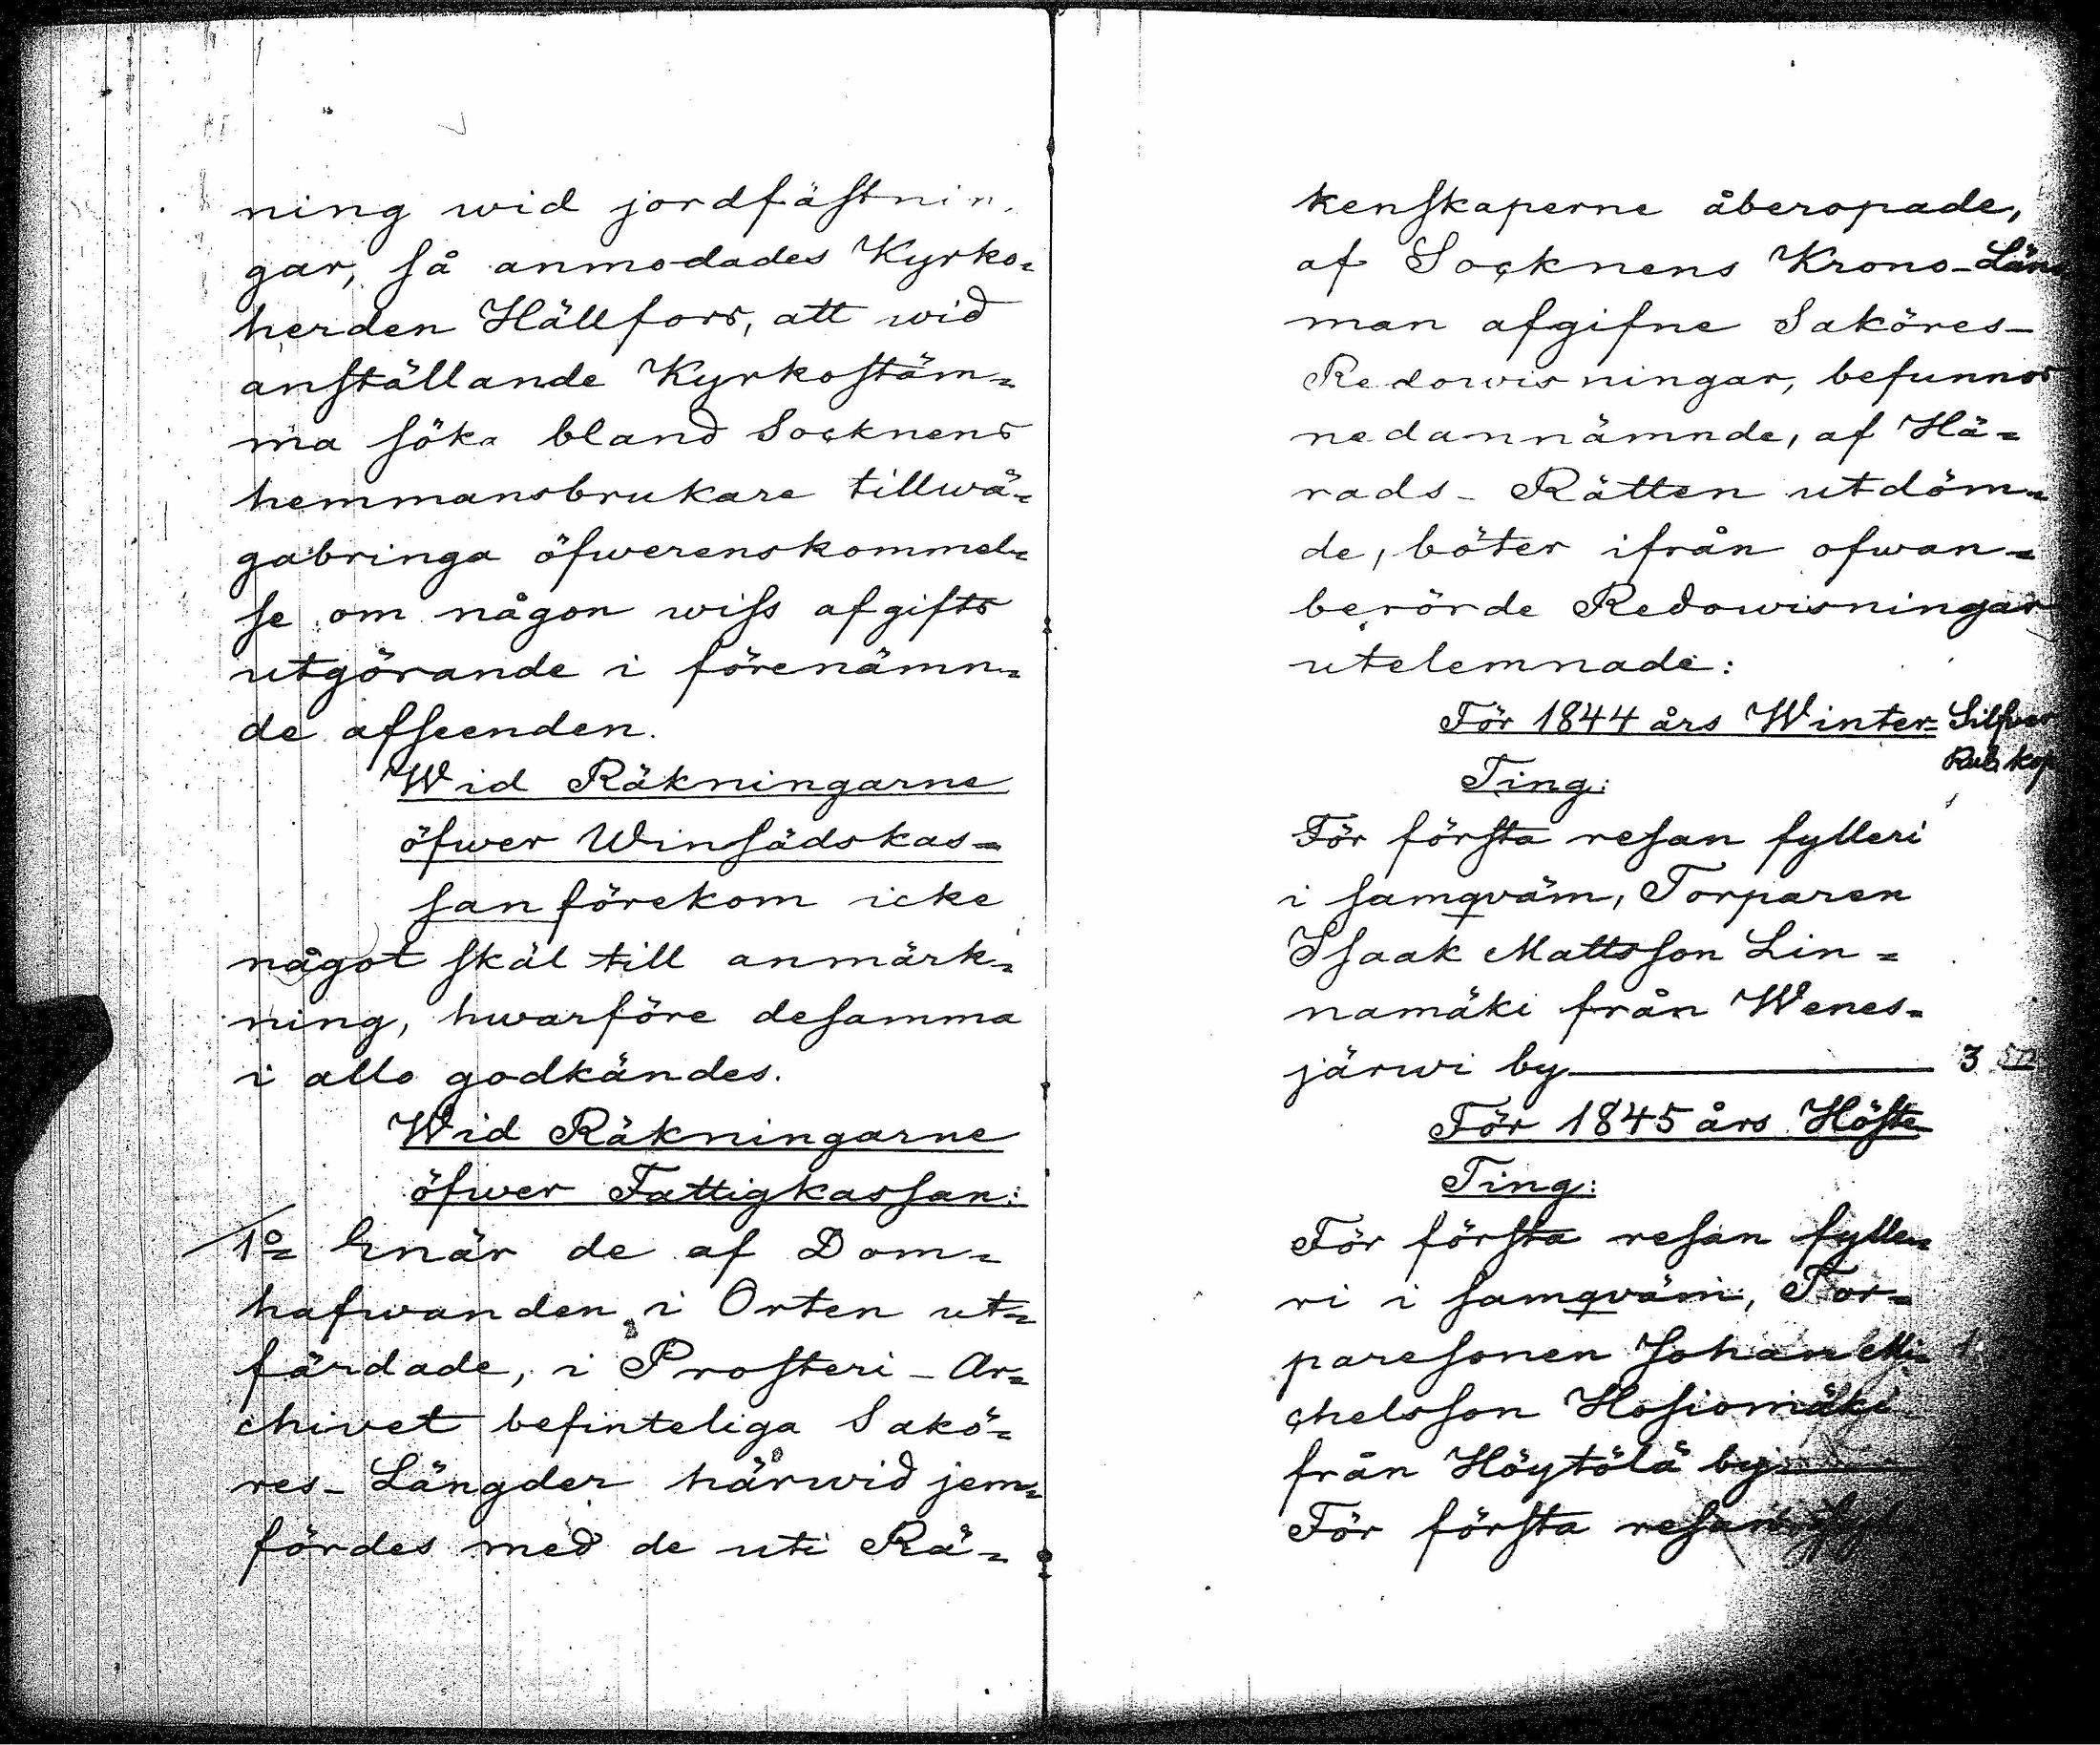 ning wid jordfästnin
gar, så anmodades Kyrko=
herden Hällfors, att wid
anställande Kyrkostäm=
ma söka bland Socknens
hemmansbrukare tillwä=
gabringa öfwerenskommel=
se om någon wiss afgifts
utgörande i förenämn=
de afseenden.
Wid Räkningarne
öfwer Winsädskas=
san förekom icke
något skäl till anmärk=
ning, hwarföre desamma
i allo godkändes.
Wid Räkningarne
öfwer Fattigkassan:
1o Enär de af Dom=
hafwanden i Orten ut=
färdade, i Prosteri-Ar=
chivet befinteliga Sakö=
res-Längder härwid jem=
fördes med de uti Rä=
kenskaperne åberopade,
af Socknens Krono-Läns
man afgifne Saköres-
Redowisningar, befunnos
nedannämnde, af Hä=
rads-Rätten utdöm=
de, böter ifrån ofwan=
berörde Redowisningar
utelemnade:
För 1844 års Winter= Silfver
Ting: Rub. kop
För första resan fylleri
i samqväm, Torparen
Isaak Mattsson Lin=
namäki från Wenes=
järwi by 3
För 1845 års Höste
Ting:
För första resan fylle=
ri i samqväm, Tor=
paresonen Johan Mi= 1
chelsson Hosiomäki
från Höytölä by
För första resan